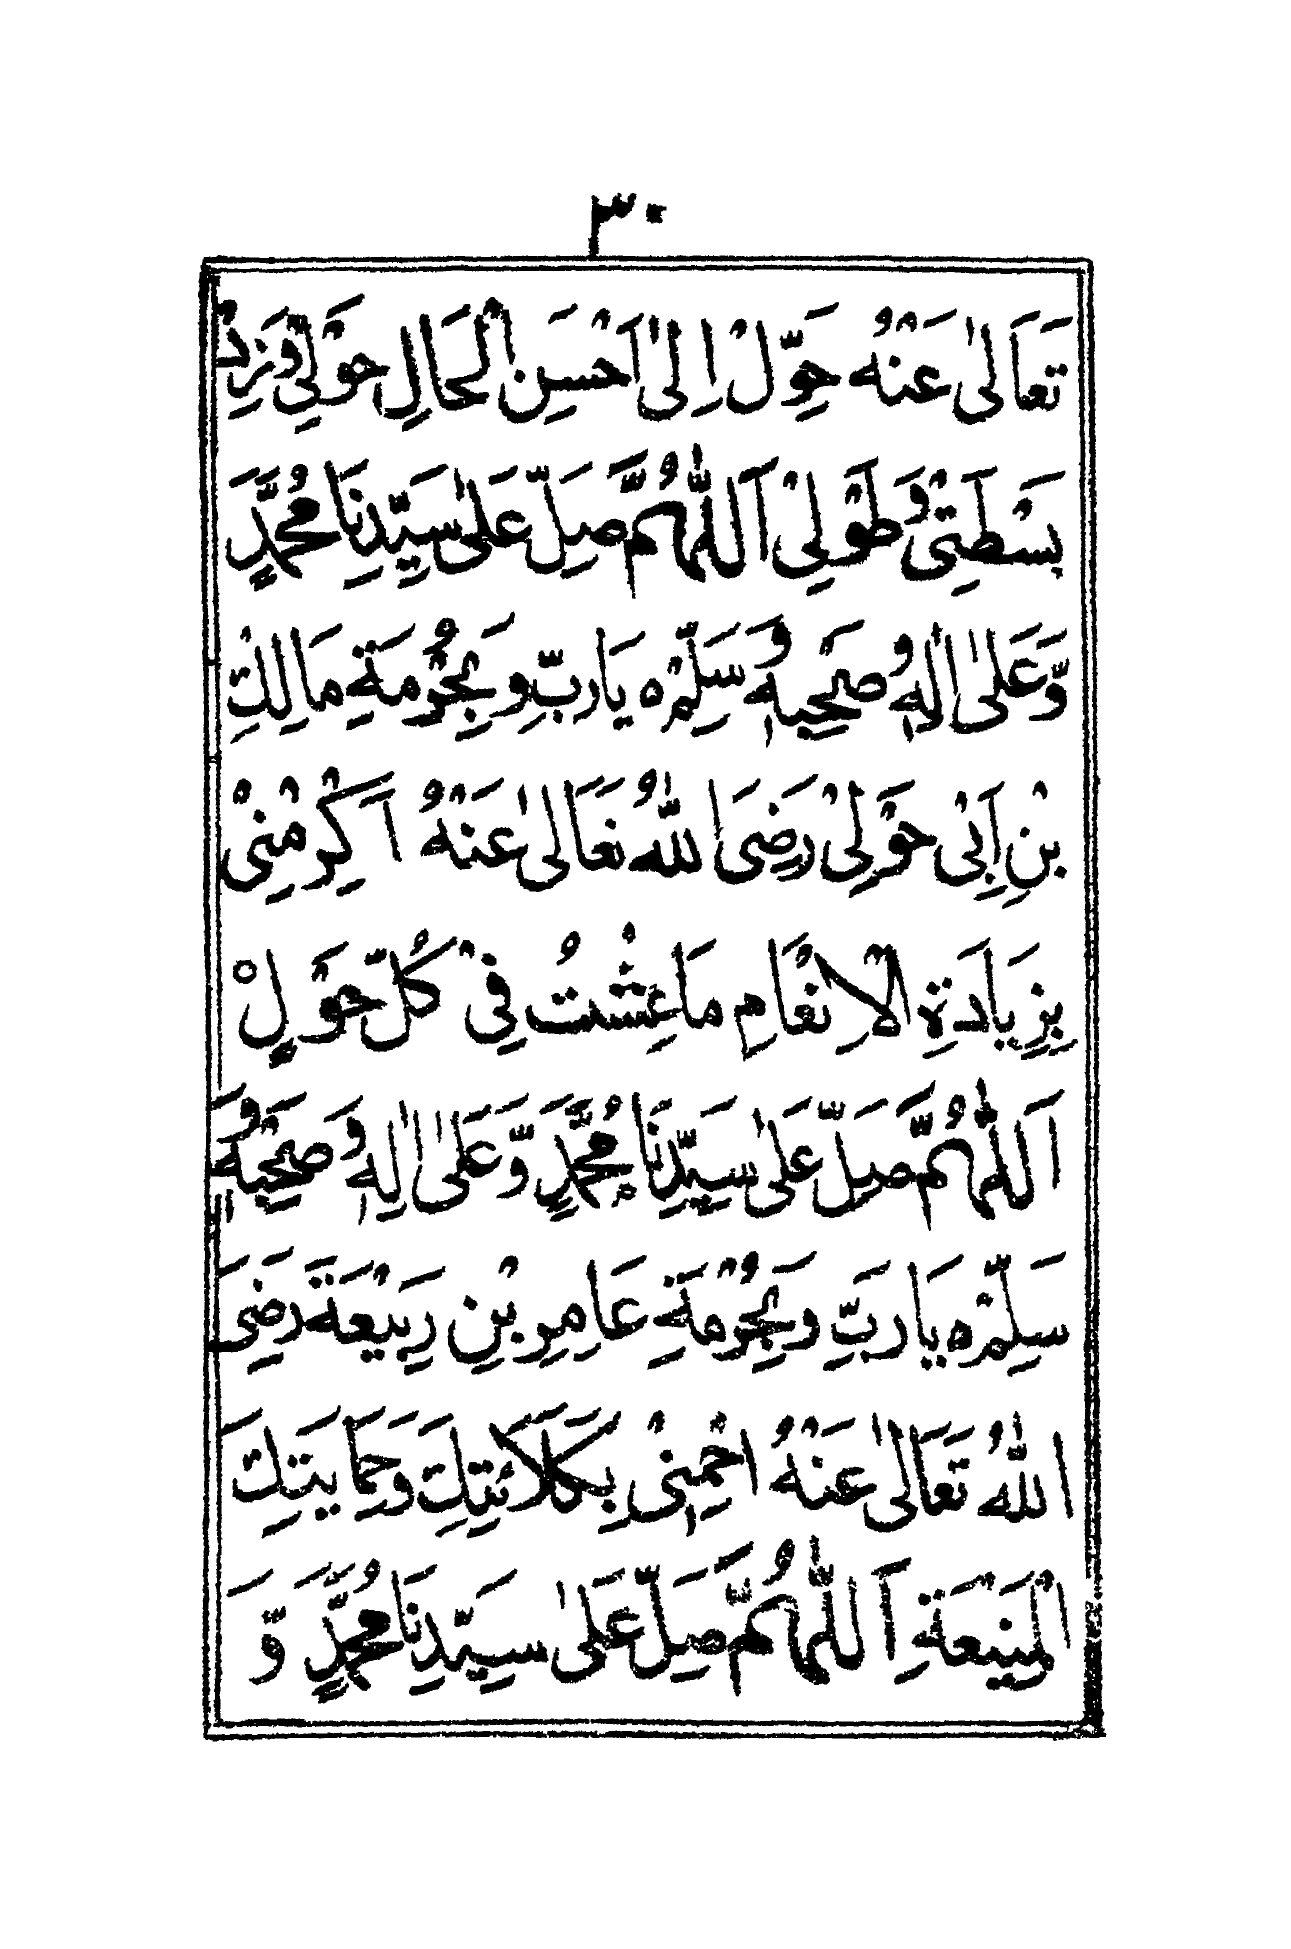 ٣٠
تَعَالٰى عَنْهُ حَوِّلْ اِلىٰ اَحْسَنِ الْحَالِ حَوْلِىْ وَزِدْ
بَسْطَتِىْ وَطَوْلِىْ اَللّٰهُمَّ صَلِّ عَلىٰ سَيِّدِنَا مُحَمَّدٍ
وَّعَلىٰ اٰلِهٖ وَصَحْبِهٖ وَسَلِّمْ ٥ يَا رَبِّ وَبِحُرْمَةِ مَالِكِ
بْنِ اَبِىْ حَوْلِىْ رَضِىَ اللّٰهُ تَعَالىٰ عَنْهُ اَكْرِمْنِىْ
بِزِيَادَةِ الْاِنْعَامِ مَا عِشْتُ فِىْ كُلِّ حَوْلٍ ٥
اَللّٰهُمَّ صَلِّ عَلىٰ سَيِّدِنَا مُحَمَّدٍ وَّعَلىٰ اٰلِهٖ وَصَحْبِهٖ وَ
سَلِّمْ ٥ يَا رَبِّ وَبِحُرْمَةِ عَامِرِ بْنِ رَبِيْعَةَ رَضِىَ
اللّٰهُ تَعَالىٰ عَنْهُ احْمِنِىْ بِكَلَائَتِكَ وَحِمَايَتِكَ
الْمَنِيْعَةِ اَللّٰهُمَّ صَلِّ عَلىٰ سَيِّدِنَا مُحَمَّدٍ وَّ